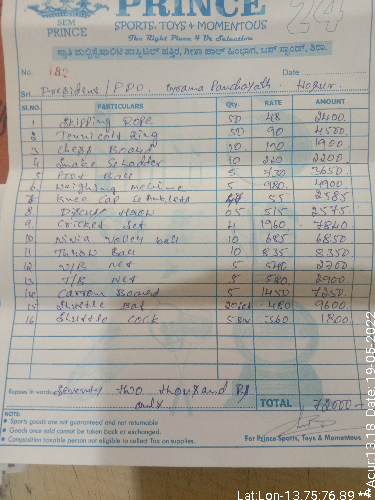 PRINCE
SEM PRINCE
SPORTS, TOYS & MOMENTOUS
The Right Place 4 Ur Selection
24
No. 182 Date
Sri. President / PDO. Grama Panchayath. Hosur.
SI.NO. PARTICULARS Qty. RATE AMOUNT
1 Skipping Rope 50 48 2400
2 Tennicoit Ring 50 90 4500
3 Chess Board 1900
4 Snake & Ladder 10 220 2200
5 Foot Ball 5 730 3650
6 Weighing Machine 5 980 4900
7 Knee Cap & Anklets 47 55 2585
8 Discus throw 05 515 2575
9 Cricket Set 4 1960 7840
10 Nivia Volley ball 10 685 6850
11 Throw Ball 10 835 8350
12 V/B Net 5 540 2700
13 T/B Net 5 580 2900
14 Carrom Board 5 1450 7250
15 Shuttle Bat 480 9600
16 Shuttle Cock 5 360 1800
Rupees in words Seventy two thousand Rs only
TOTAL 72000
NOTE:
Sports goods are not guaranteed and not returnable
Goods once sold cannot be taken back or exchanged.
Composition taxable person not eligible to collect Tax on supplies.
For Prince Sports, Toys & Momentous
Lat:Lon-13.75:76.89 **Acur:13.18 Date:19-05-2022